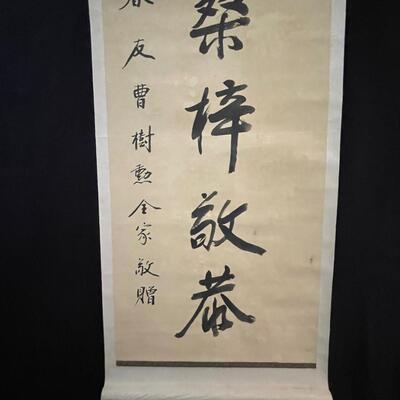 桑梓敬恭
友曹樹勳全家敬贈